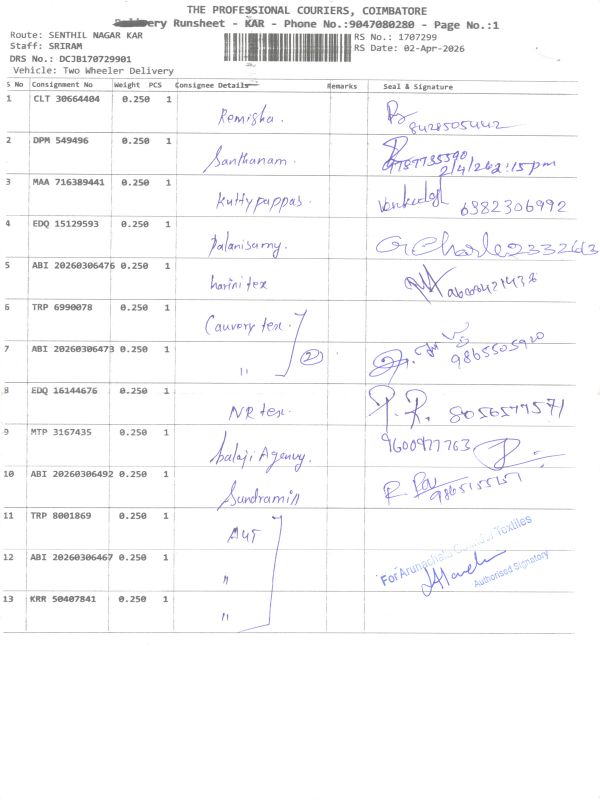 THE PROFESSIONAL COURIERS, COIMBATORE
Runsheet - KAR - Phone No.:9047080280 - Page No.:1
Route: SENTHIL NAGAR KAR
RS No.: 1707299
Staff: SRIRAM
RS Date: 02-Apr-2026
DRS No.: DCJB170729901
Vehicle: Two Wheeler Delivery
S No Consignment No Weight PCS Consignee Details Remarks Seal & Signature
1 CLT 30664404 0.250 1 Remisha. 8428505442
2 DPM 549496 0.250 1 Santhanam. 9787735590
2/4/26 2:15pm
3 MAA 716389441 0.250 1 Kuttypappas. 6382306992
4 EDQ 15129593 0.250 1 Palanisamy.
5 ABI 20260306476 0.250 1 harini tex
6 TRP 6990078 0.250 1 Cauvery tex.
7 ABI 20260306473 0.250 1 " 2 9865505920
8 EDQ 16144676 0.250 1 NR tex. 8056577571
9 MTP 3167435 0.250 1 balaji Agency. 9600977763
10 ABI 20260306492 0.250 1
11 TRP 8001869 0.250 1
12 ABI 20260306467 0.250 1 "
For Textiles
Authorised Signatory
13 KRR 50407841 0.250 1 "